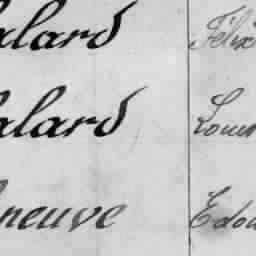 alard Félix
alard Louis
neuve Edou